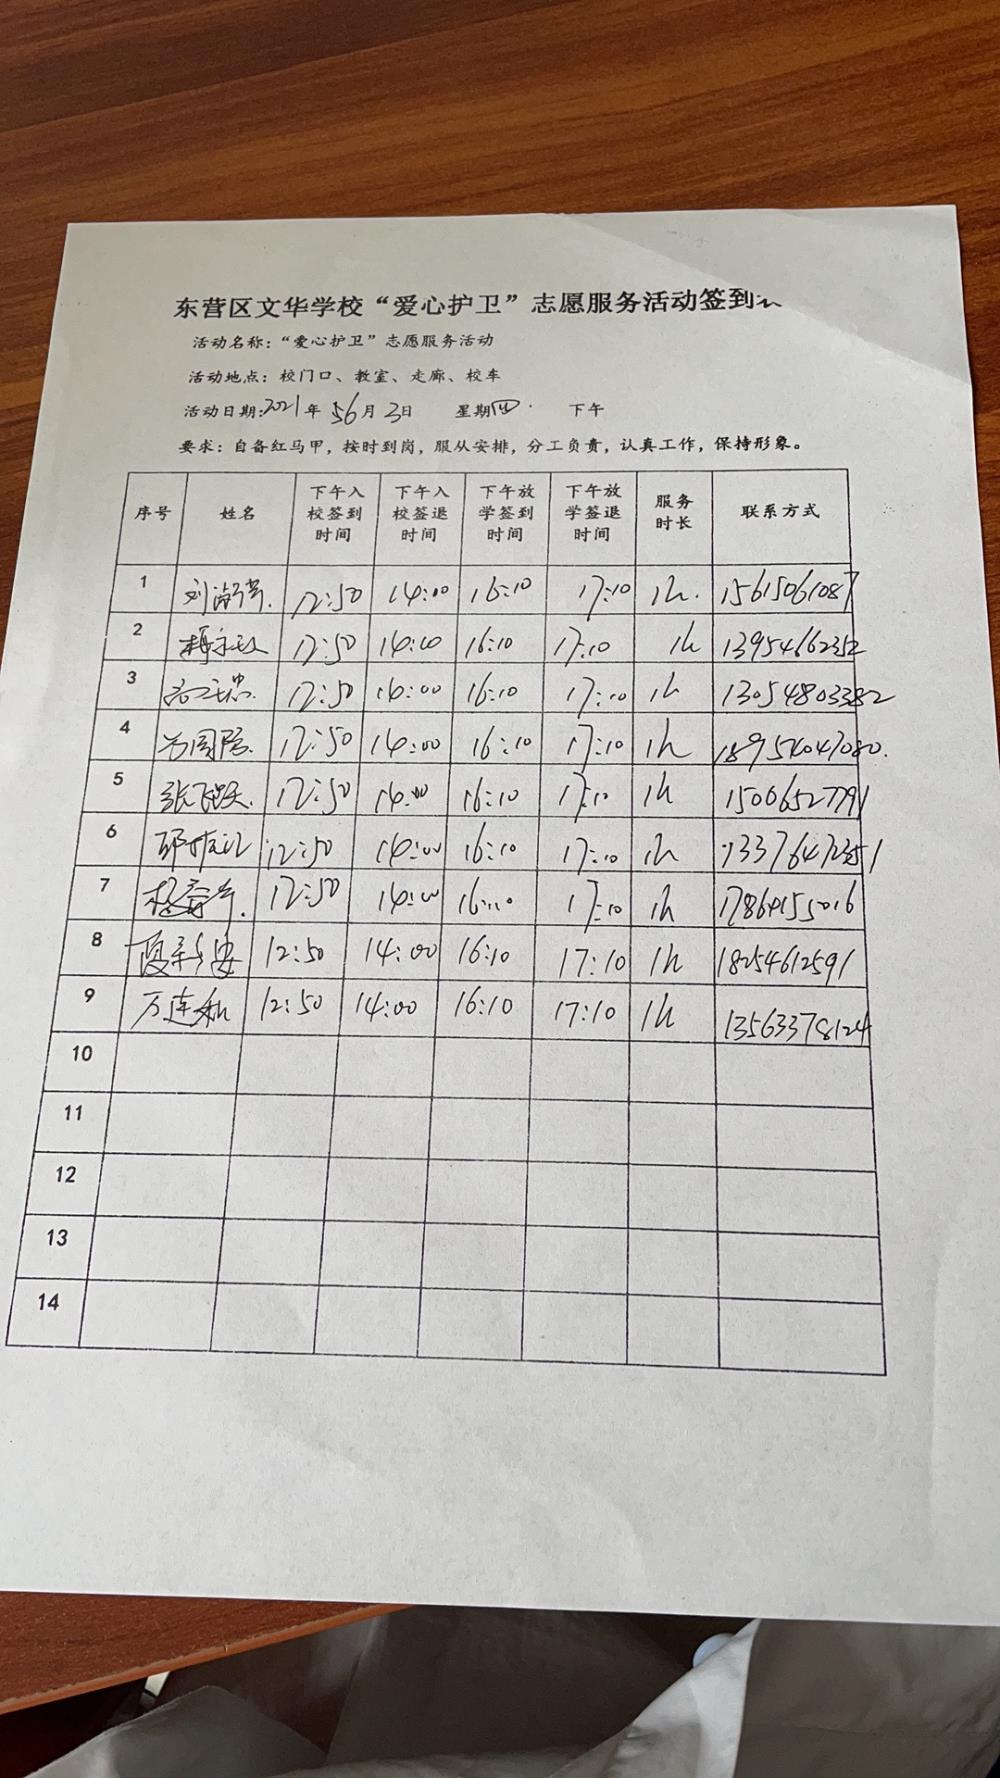 东营区文华学校“爱心护卫”志愿服务活动签到
活动名称：“爱心护卫”志愿服务活动
活动地点：校门口、教室、走廊、校车
活动日期:2021年 6月 3日 星期四 下午
要求：自备红马甲，按时到岗，服从安排，分工负责，认真工作，保持形象。
序号 姓名 下午入校签到时间 下午入校签退时间 下午放学签到时间 下午放学签退时间 服务时长 联系方式
1 刘 12:50 14:00 16:10 17:10 1h. 15615061087
2 12:50 14:00 16:10 17:10 1h 13954662352
3 12:50 14:00 16:10 17:10 1h 13054803382
4 12:50 14:00 16:10 17:10 1h 189574047080.
5 张飞跃. 12:50 14:00 16:10 17:10 1h 15006527791
6 12:50 14:00 16:10 17:10 1h
7 杨 12:50 14:00 16:10 17:10 1h 17864155016
8 夏 安 12:50 14:00 16:10 17:10 1h 18254612591
9 万连私 12:50 14:00 16:10 17:10 1h 13563378124
10
11
12
13
14